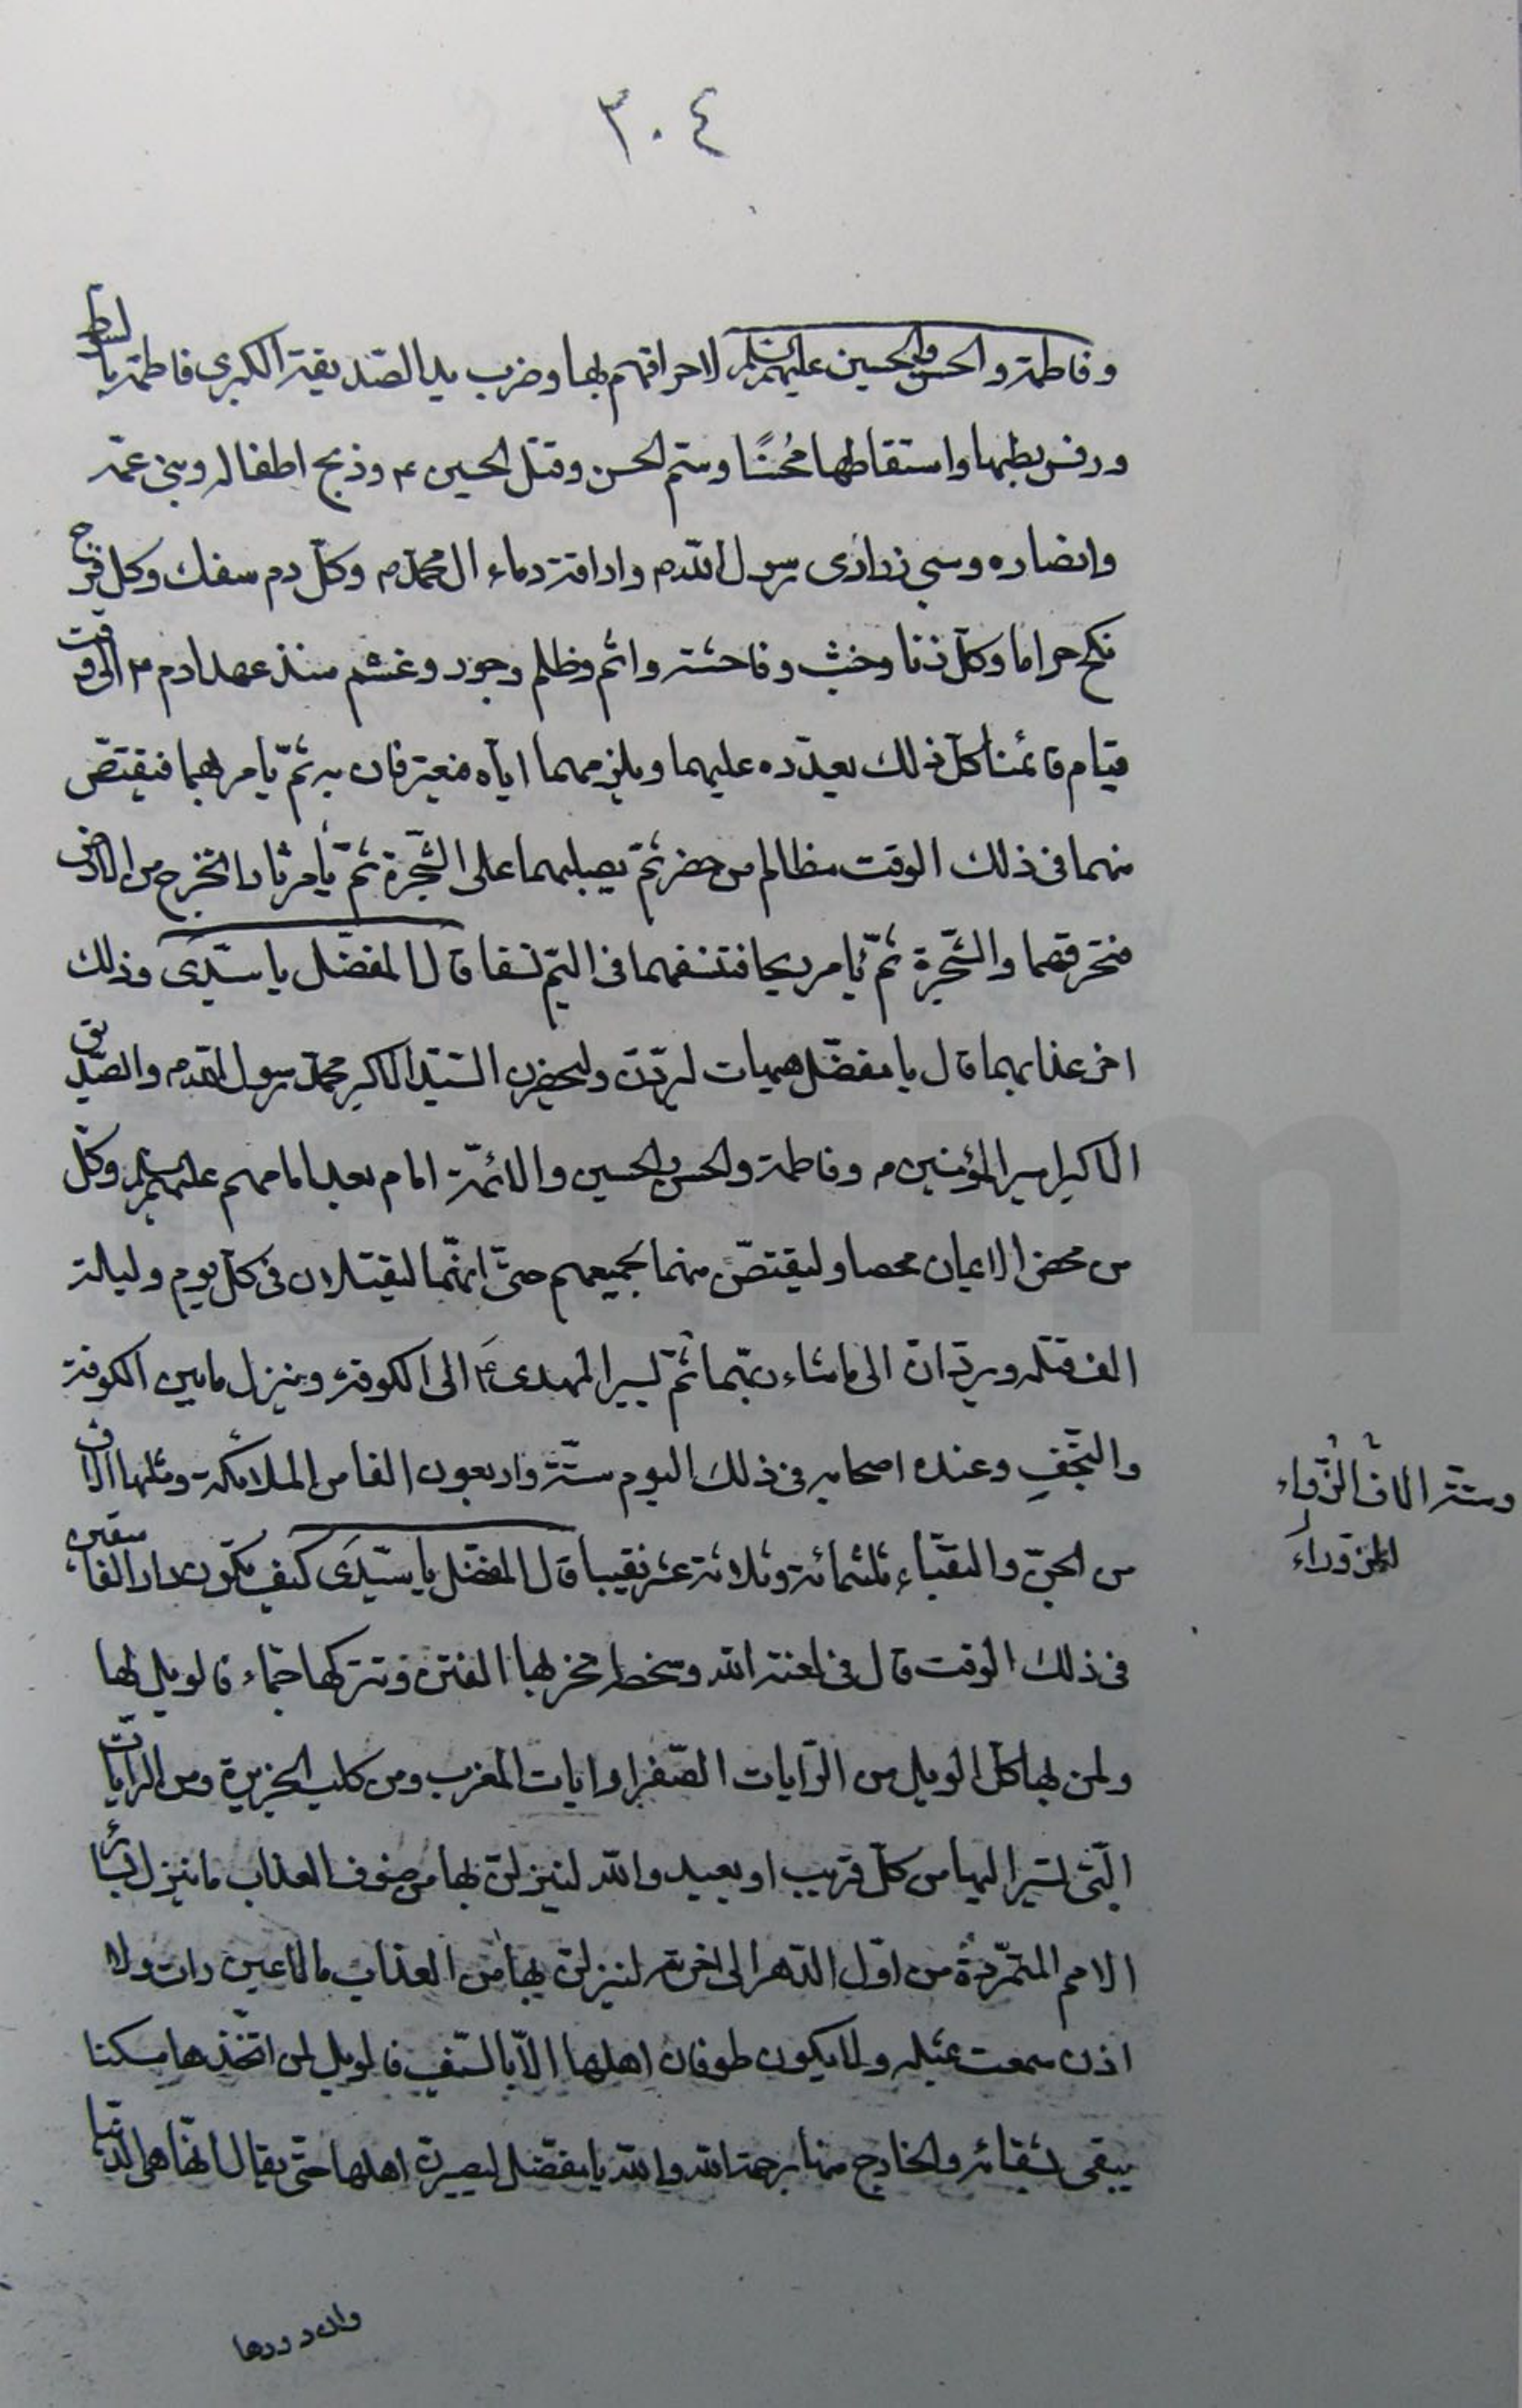 ٣٠٤
وفاطمة والحسن والحسين عليهم السلم لاحراقهم بها وضرب يد الصديقة الكبرى فاطمة بالسوط
ورفس بطنها واسقاطها محسنا وسم الحسن وقتل الحسين ع وذبح اطفاله وبنى عمه
وانصاره وسبى ذرارى رسول الله ص واراقة دماء ال محمد ص وكل دم سفك وكل فرج
نكح حراما وكل زنا وخبث وفاحشة واثم وظلم وجور وغشم منذ عهد ادم ع الى وقت
قيام قائمنا كل ذلك يعدده عليهما ويلزمهما اياه فيعترفان به ثم يأمر بهما فيقتص
منهما فى ذلك الوقت مظالم من حضر ثم يصلبهما على الشجرة ثم يأمر نارا تخرج من الارض
فتحرقهما والشجرة ثم يأمر ريحا فتنسفهما فى اليم نسفا قال المفضل يا سيدى وذلك
اخر عذابهما قال يا مفضل هيهات ليردن وليحضرن السيد الاكبر محمد رسول الله ص والصديق
الاكبر امير المؤمنين ع وفاطمة والحسن والحسين والائمة امام بعد امامهم عليهم السلم وكل
من محض الايمان محضا وليقتصن منهما لجميعهم حتى انهما ليقتلان فى كل يوم وليلة
الف قتلة ويردان الى ما شاء ربهما ثم يسير المهدى ع الى الكوفة وينزل ما بين الكوفة
والنجف وعنده اصحابه فى ذلك اليوم ستة واربعون الفا من الملائكة ومثلها الاف
من الجن والنقباء ثلثمائة وثلاثة عشر نقيبا قال المفضل يا سيدى كيف تكون دار الفاسقين
فى ذلك الوقت قال فى لعنة الله وسخطه تخربها الفتن وتتركها حماء فالويل لها
ولمن بها كل الويل من الرايات الصفر ورايات المغرب ومن كلب الجزيرة ومن الرايات
التى تسير اليها من كل قريب او بعيد والله لينزلن بها من صنوف العذاب ما نزل بسائر
الامم المتمردة من اول الدهر الى اخره ولينزلن بها من العذاب ما لا عين رات ولا
اذن سمعت بمثله ولا يكون طوفان اهلها الا بالسيف فالويل لمن اتخذها مسكنا
يبقى لشقائه والخارج منها برحمة الله والله يا مفضل ليصيرن اهلها حتى يقال انها هى الدنيا
وستة الاف
الزوراء